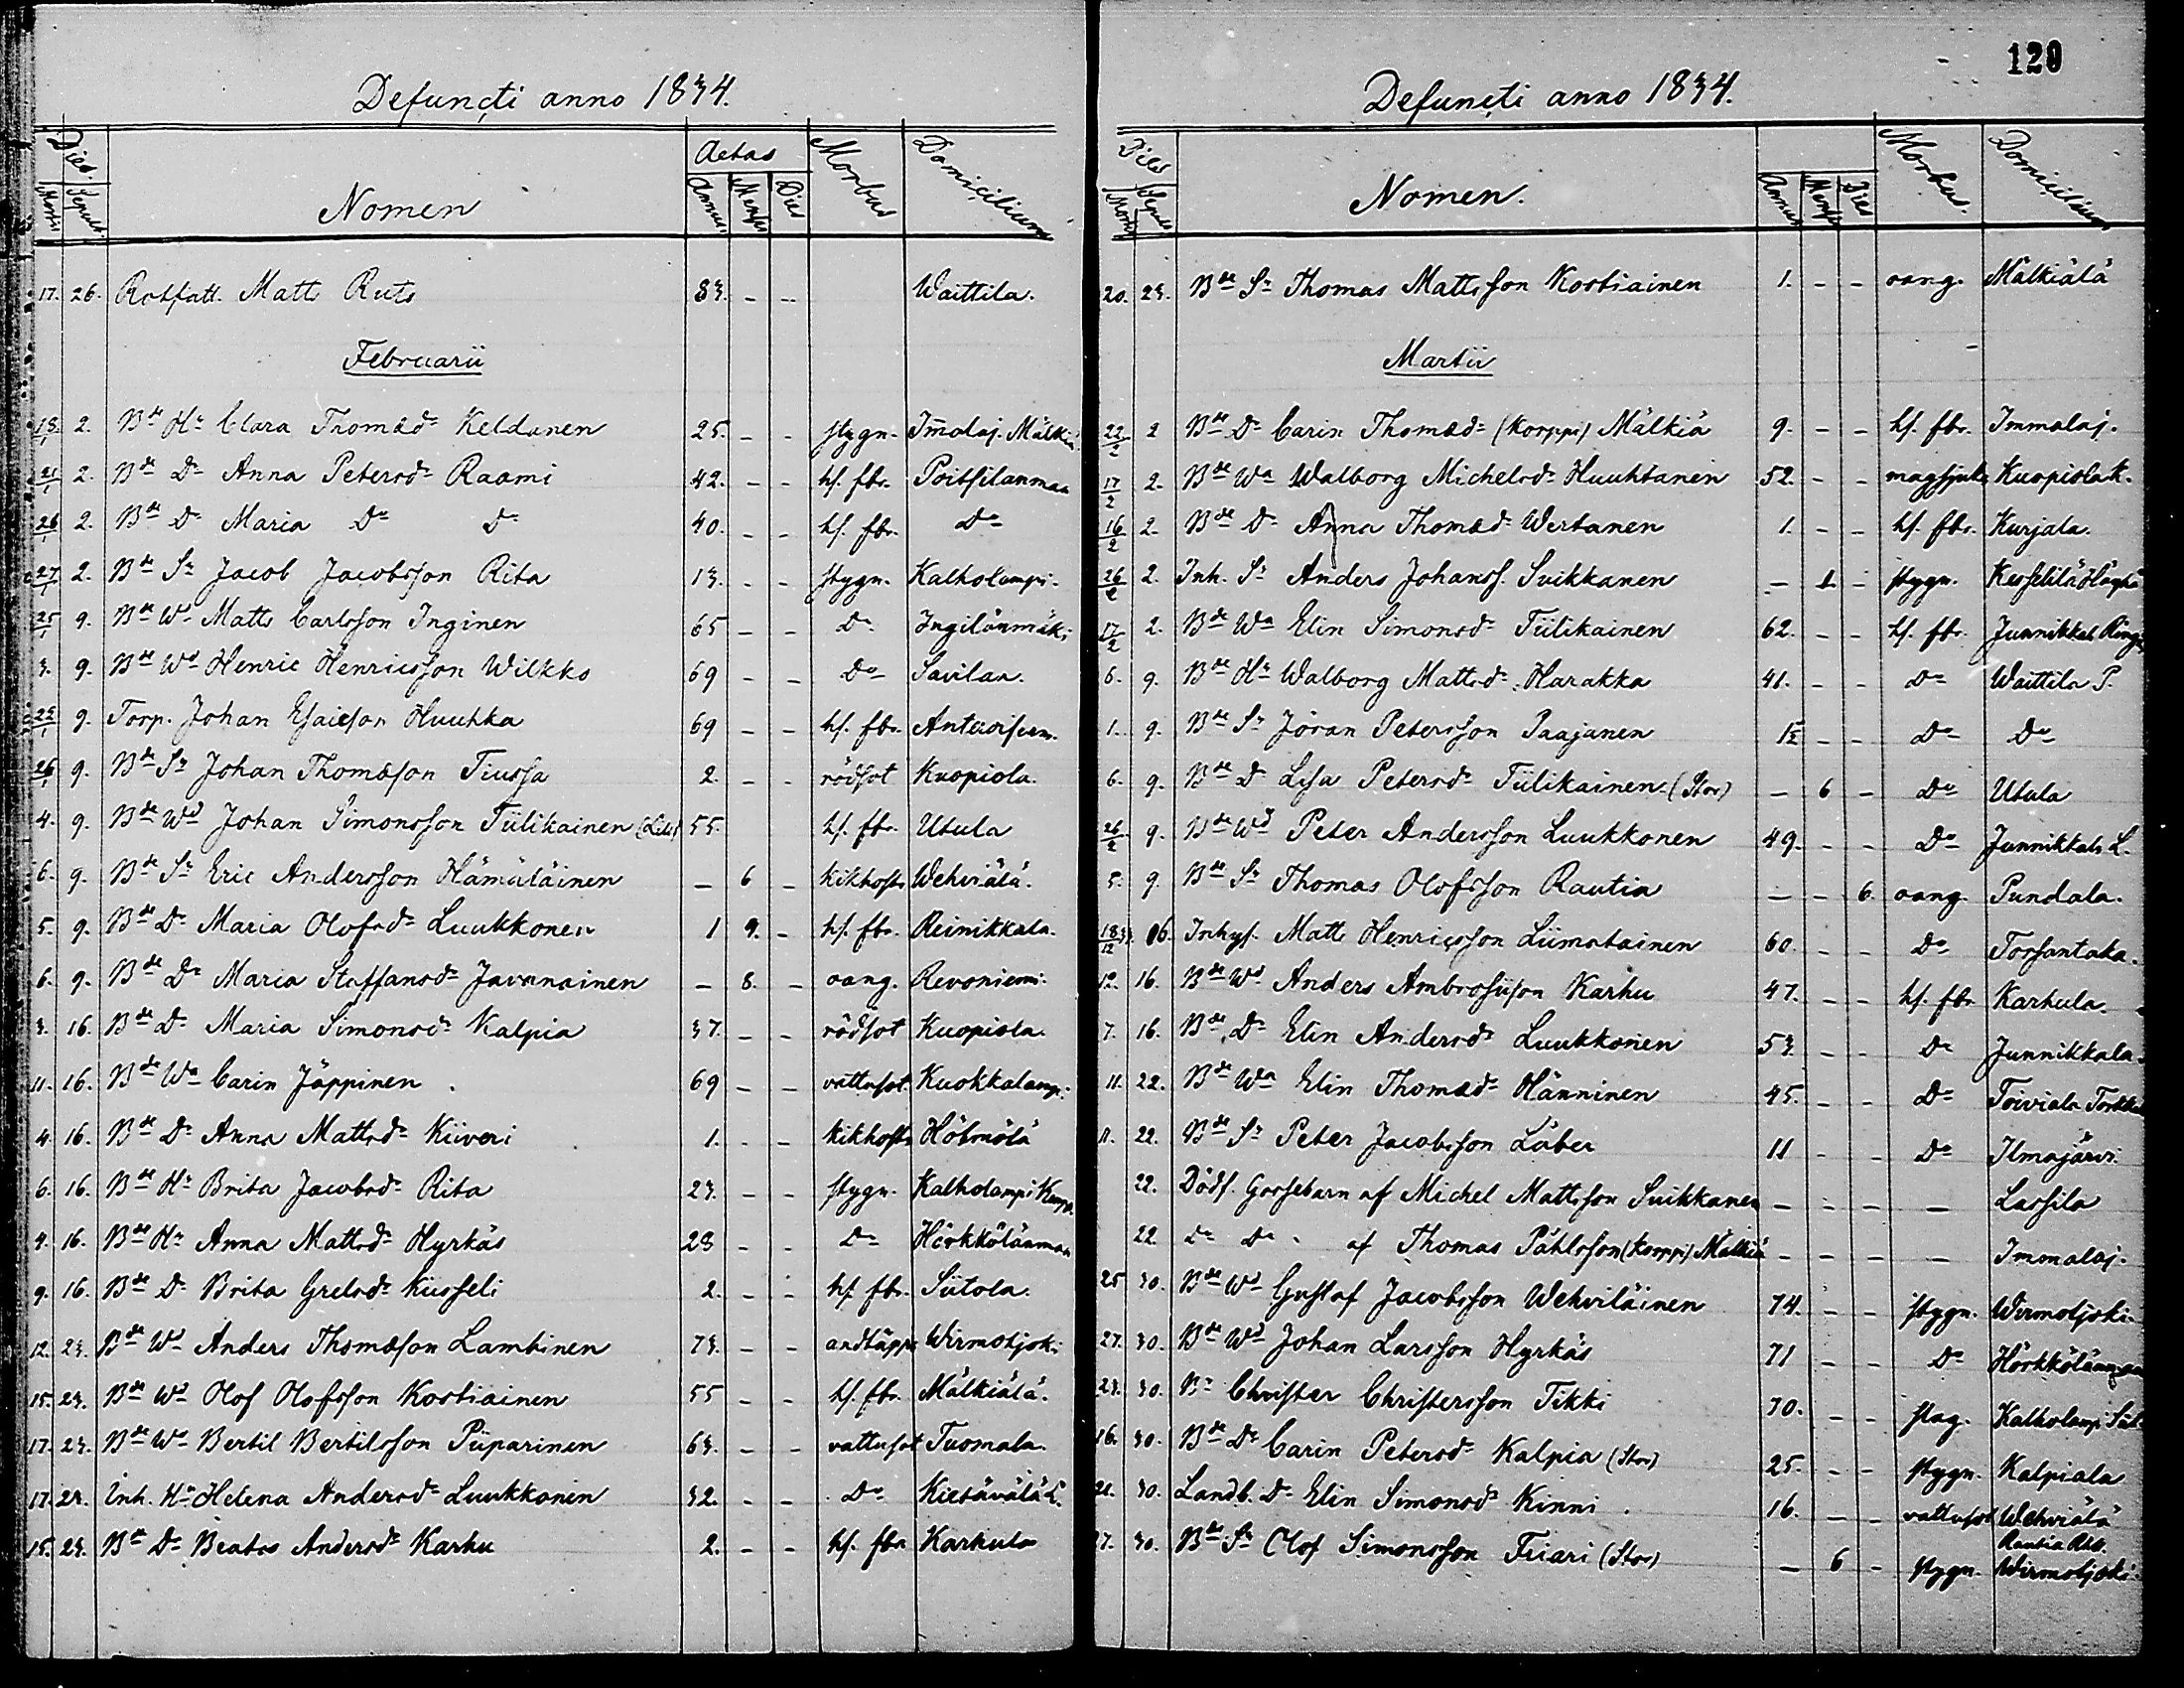 Defuncti anno 1834.
Dies Morti Sepult. Nomen Aetas Annus Menses Dies Morbus Domicilium
17. 26. Rotfatt. Matts Ruts 83. - - Waittila.
Februarii
18/1 2. Bde Hu Clara Thomæd: Keldanen 25. - - stygn. Im̄olaj. Mälkiä
21/1 2. Bde Dr Anna Petersd: Raami 42. - - hs. fbr. Poitsilanmaa
26/1 2. Bde Dr Maria Do Do 40. - - hs. fbr. Do
27/1 2. Bde Sn Jacob Jacobsson Rita 13. - - stygn. Kalholampi.
25/1 9. Bde Wd Matts Carlsson Inginen 65 - - Do Ingilänmäki
3. 9. Bde Wd Henric Henricsson Wilkko 69 - - Do Savilax.
9. Torp. Johan Esaieson Huuhka 69 - - hs. fbr.
26/1 9. Bde Sn Johan Thomæson Tiussa 2. - - rödsot Kuopiola.
4. 9. Bde Wd Johan Simonsson Tiilikainen 55. hs. fbr. Utula
6. 9. Bde Sn Eric Andersson Hämäläinen - 6 - kikhosta Wehviälä.
5. 9. Bde Dr Maria Olofsd: Luukkonen 1 9. - hs. fbr. Reinikkala.
6. 9. Bde Dr Maria Staffansd: Javanainen - 8. - oang. Revoniemi.
3. 16. Bde Dr Maria Simonsd: Kalpia 37. - - rödsot Kuopiola.
11. 16. Bde Wa Carin Jäppinen. 69 - - vattusot. Kuokkalamp.
4. 16. Bde Dr Anna Mattsd: Kiiveri 1. - - kikhosta Hötmölä
6. 16. Bde Hu Brita Jacobsd: Rita 23. - - stygn. Kalholampi
4. 16. Bde Hu Anna Mattsd: Hyrkäs 28 - - Do Hörkkölänmaa
9. 16. Bde Dr Brita Grelsd: Kiisseli 2. - - hs. fbr. Siitola.
12. 23. Bde Wd Anders Thomæson Lambinen 73. - - andtäppa Wirmotjoki
15. 23. Bde Wd Olof Olofsson Kostiainen 55 - - hs. fbr. Mälkiälä.
17. 23. Bde Wd Bertil Bertilsson Piiparinen 63. - - vattusot Tuomala.
17. 23. Inh. Hu Helena Andersd: Luukkonen 32. - - Do Kietävälä L.
15. 23. Bde Dr Beata Andersd: Karhu 2. - - hs. fbr. Karhula
129
Defuncti anno 1834.
Dies Morti Sepult. Nomen. Annus Menses Dies Morbus. Domicilium
20. 23. Bde Sn Thomas Mattsson Kostiainen 1. - - oang. Mälkiälä
Martii
22/2 2 Bde Dr Carin Thomæd: (Korppi) Mälkiä 9. - - hs. fbr. Immalaj.
17/2 2. Bde Wa Walborg Michelsd: Huuhtanen 52. - - magsjuk Kuopiola K.
16/2 2. Bde Dr Anna Thomæd: Wertanen 1. - - hs. fbr. Kurjala.
26/2 2. Inh. Sn Anders Johanss. Suikkanen - 1 - stygn.
17/2 2. Bde Wa Elin Simonsd: Tiilikainen 62. - - hs. fbr. Junnikkal.
6. 9. Bde Hu Walborg Mattsd: Harakka 41. - - Do Waittila P.
1. 9. Bde Sn Jöran Petersson Paajanen 1½ - - Do Do
6. 9. Bde Dr Lisa Petersd: Tiilikainen (Stor) - 6 - Do Utula
26/2 9. Bde Wd Peter Andersson Luukkonen 49. - - Do Junnikkala L.
5. 9. Bde Sn Thomas Olofsson Rautia - - 6. oang. Pundala.
16. Inhys. Matts Henricsson Liimatainen 60. - - Do Torsantaka.
12. 16. Bde Wd Anders Ambrosiison Karhu 47. - - hs. fbr Karhula.
7. 16. Bde Dr Elin Andersd: Luukkonen 53. - - Do Junnikkala.
11. 22. Bde Wa Elin Thomæd: Hänninen 45. - - Do Toiviala
11. 22. Bde Sn Peter Jacobsson Läber 11 - - Do Ilmajärvi.
22. Dödf. Gossebarn af Michel Mattsson Suikkanen - - - - Lassila
22. Do Do af Thomas Påhlsson (Korppi) Mälkiä - - - - Immalaj.
25 30. Bde Wd Gustaf Jacobsson Wehviläinen 74. - - stygn. Wirmotjoki.
27. 30. Bde Wd Johan Larsson Hyrkäs 71 - - Do Hörkkölänmaa
23. 30. Bn Christer Christersson Tikki 70. - - slag. Kalholampi
16. 30. Bde Dr Carin Petersd: Kalpia (Stor) 25. - - stygn. Kalpiala
21. 30. Landb. Dr Elin Simonsd: Kinni. 16. - - vattusot Wehviälä
Rautia
27. 30. Bde Sn Olof Simonsson Fiiari (Stor) - 6 - stygn. Wirmotjoki.